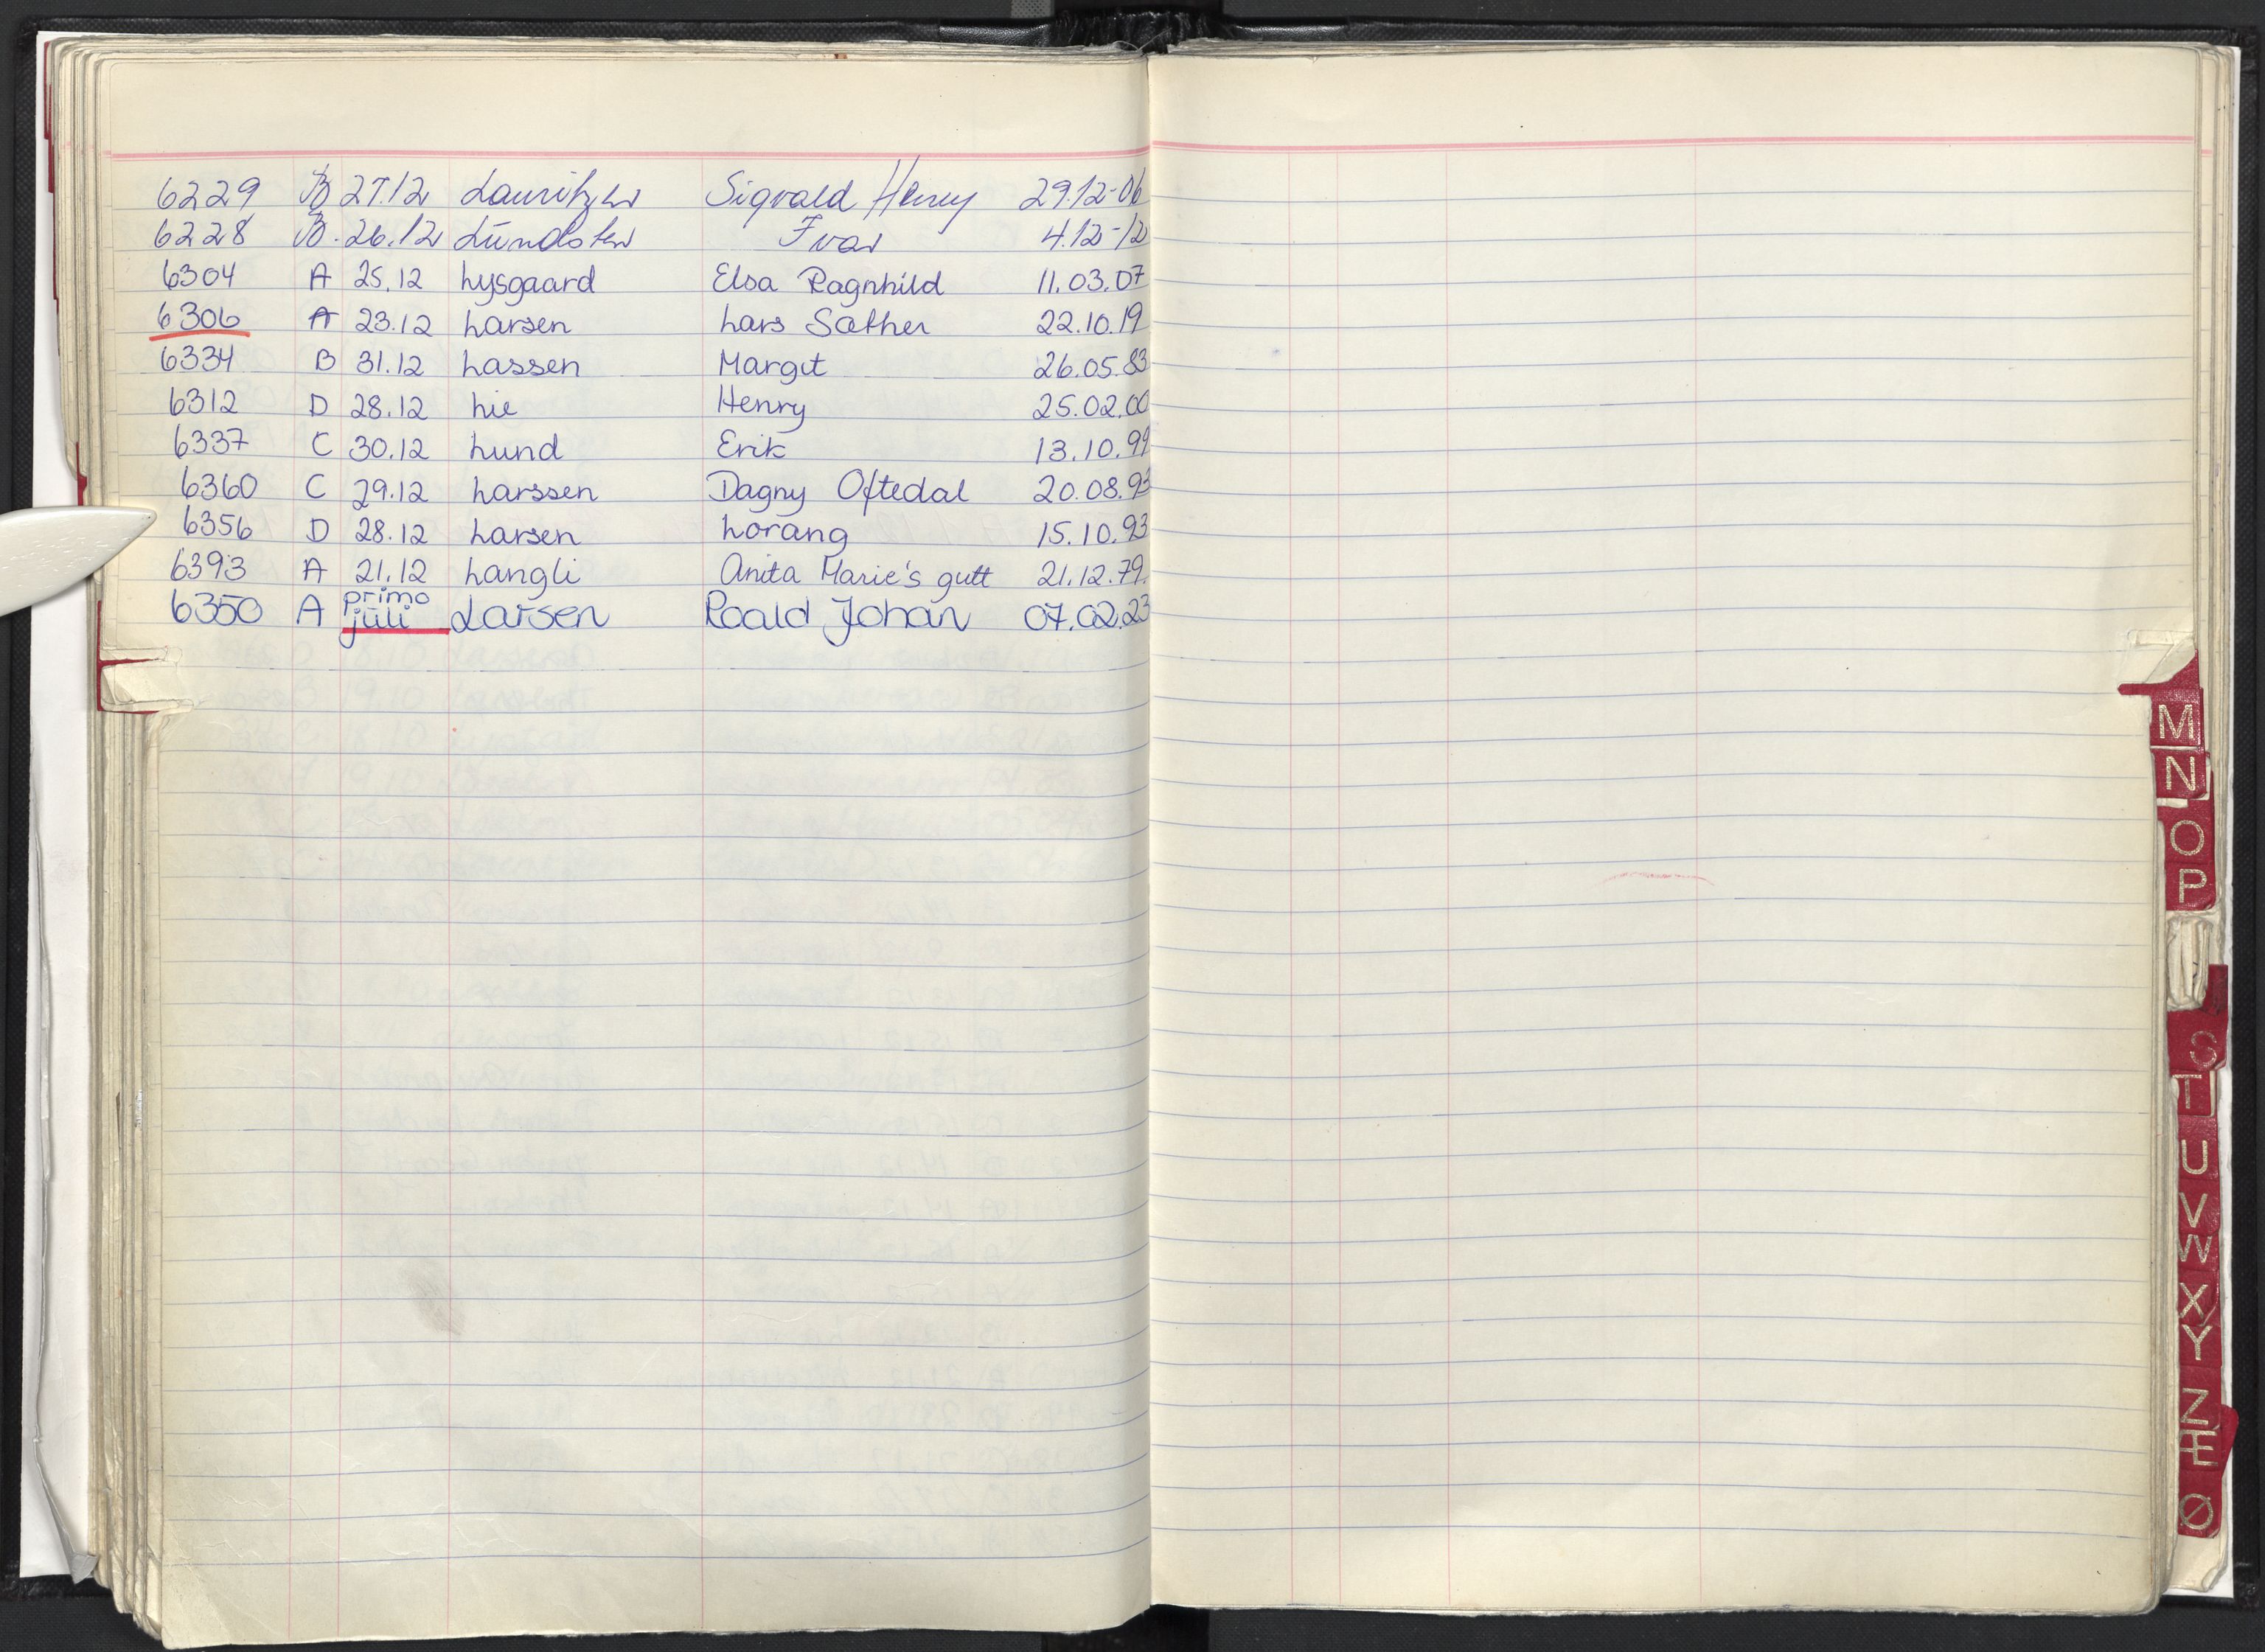 6229 B 27.12 Lauritzen Sigvald Henry 29.12-06
6228 B. 26.12 Lundsten Ivar 4.12-12
6304 A 25.12 Lysgaard Elsa Ragnhild 11.03.07
6306 A 23.12 Larsen Lars Sæther 22.10.19
6334 B 31.12 Lassen Margit 26.05.83
6312 D 28.12 Lie Henry 25.02.00
6337 C 30.12 Lund Erik 13.10.99
6360 C 29.12 Larssen Dagny Oftedal 20.08.93
6356 D 28.12 Larsen Lorang 15.10.93
6393 A 21.12 Langli Anita Marie's gutt 21.12.79.
6350 A primo juli Larsen Roald Johan 07.02.23
M
N
O
P
S
T
U
V
W
X
Y
Z
Æ
Ø